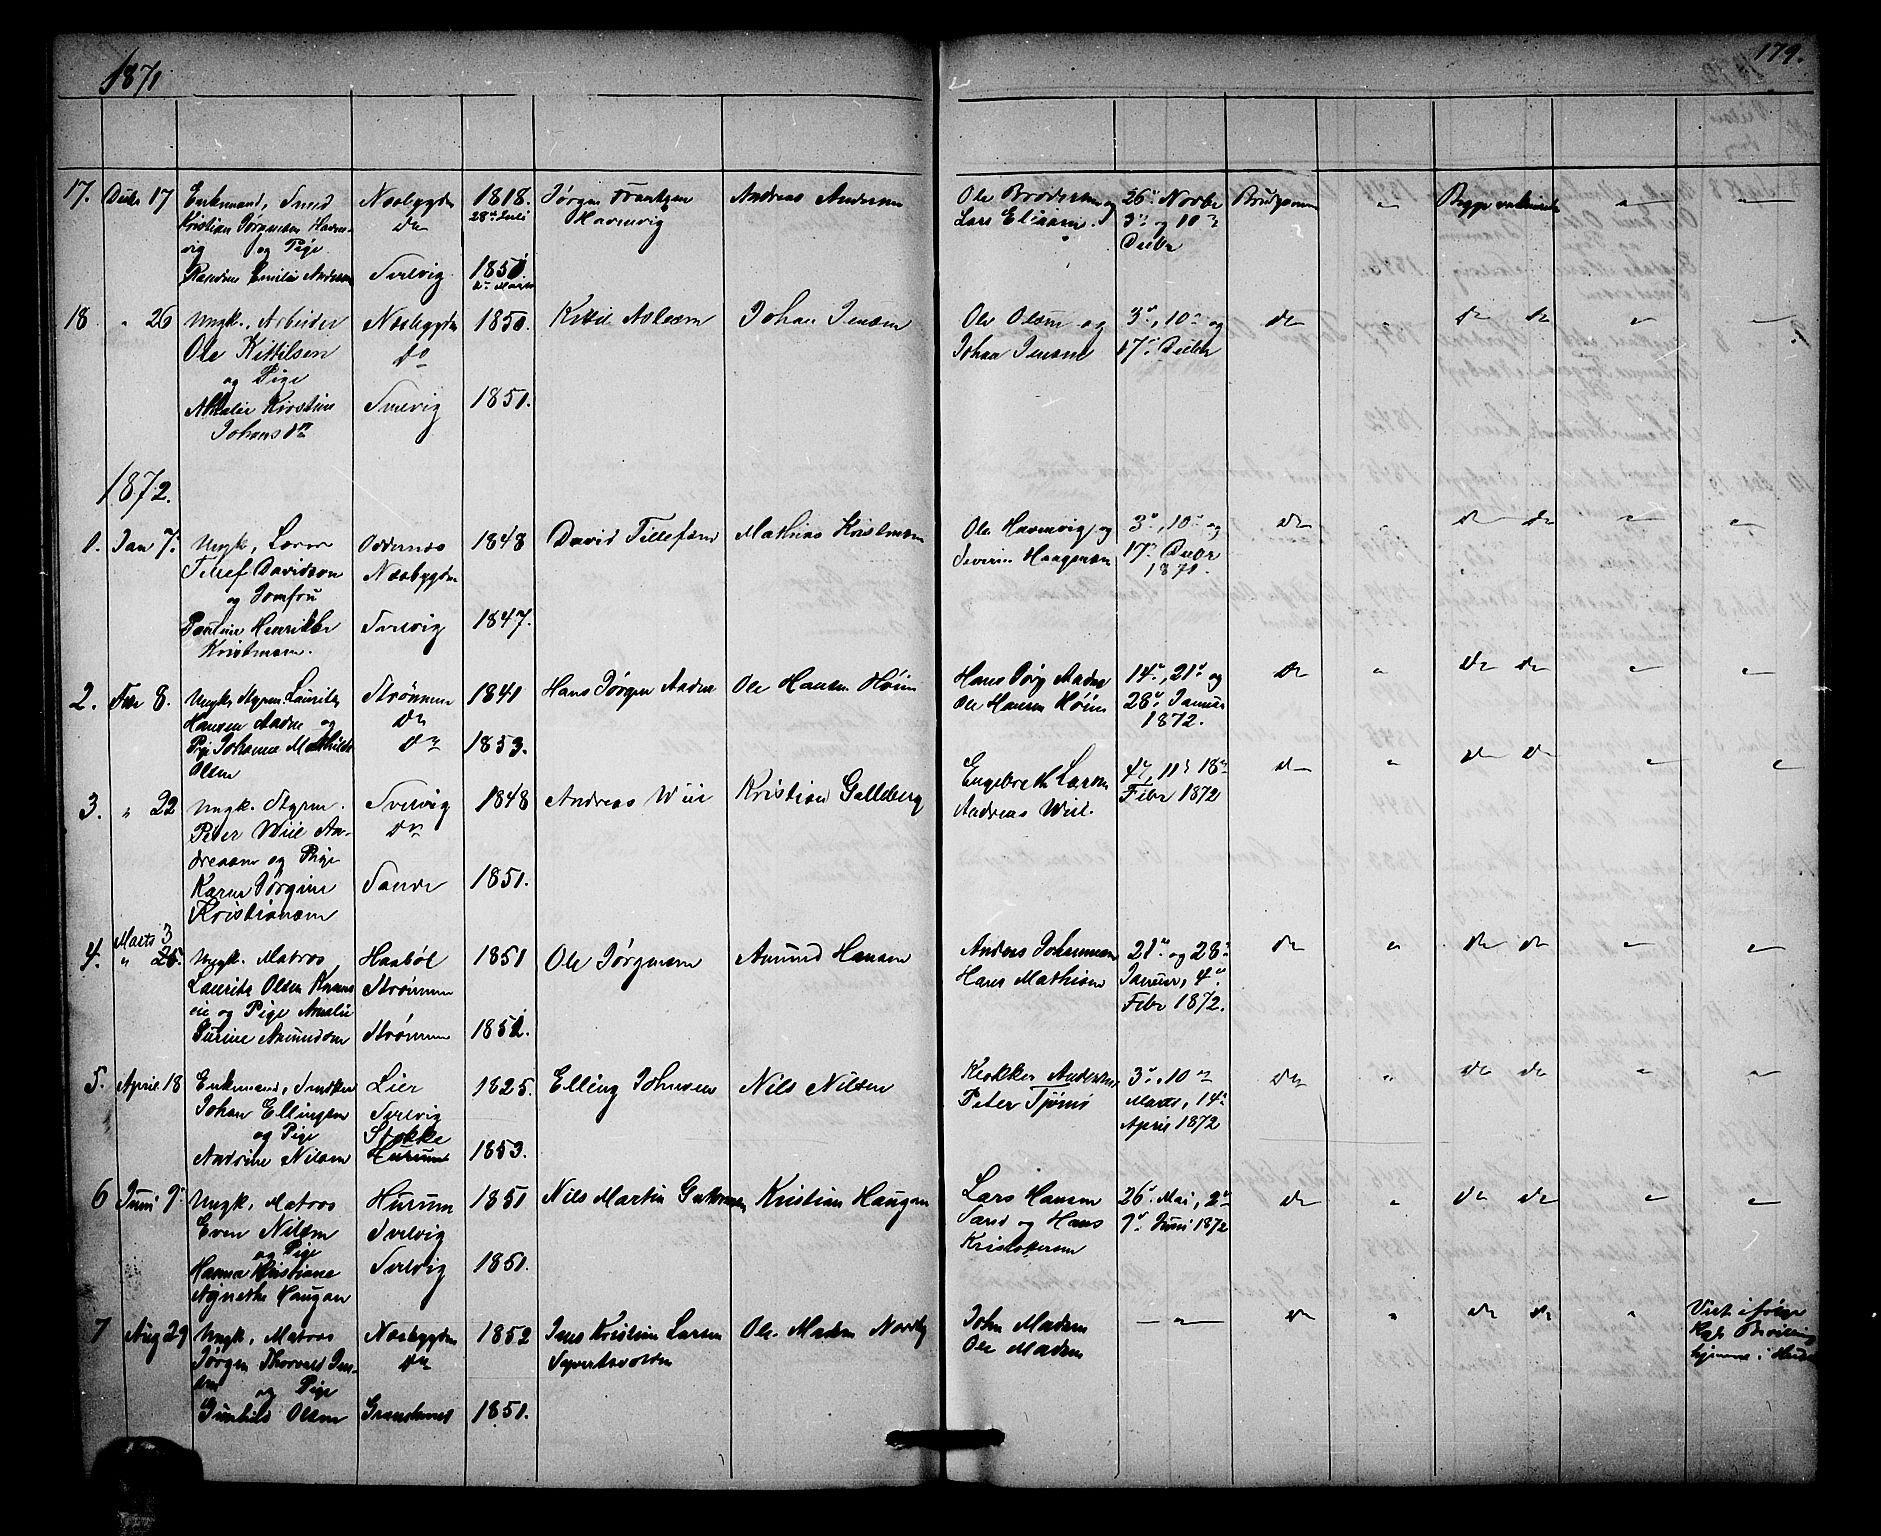 1871
179.
17. Decbr 17 Enkemand, Smed Næsbygden 1818. Jørgen Frantzen Andreas Andersen Ole Brodersen og 26de Novbr Brudgommen " Begge vaksinerte " "
Kristian Jørgensen Havne- do 28de Juli Havnevig Lars Eliasen. 3de og 10de
vig og Pige Decbr
Emilie Andersen Svelvig 1850.
2de Marts
18 " 26 Ungk., Arbeider Næsbygden 1850. Kittil Johan Jensen Ole Olsen og 3de, 10de og do " do do " "
Ole Kittilsen do Johan Jensen 17de Decbr
og Pige
Amalie Kirstine Svelvig 1851.
Johansdtr
1872.
1. Jan 7. Ungk., Lærer Oddernes 1848 David Tellefsen Mathias Kristensen Ole Havnevig, og 3de, 10de og do " do do " "
Tellef Davidson Næsbygden Severin Haagensen 17de Decbr
og Jomfru 1871.
Pauline Henrikke Svelvig 1847.
Kristensen.
2. Febr 8. Ungk. Styrm. Lauritz Strømmen 1841 Hans Jørgen Aadne Ole Hansen Høien Hans Jørg Aadne 14de, 21de og do " do do " "
Hansen Aadne og do Ole Hansen Høien 28de Januar
Pige Johanne Mathilde do 1853. 1872.
Olsen
3. " 22 Ungk. Styrm. Svelvig 1848 Andreas Wiie Kristian Galleberg Engebreth Larsen 4de, 11de 18de do " do do " "
Peter Wiie An- do Andreas Wiel. Febr 1872
dreasen og Pige
Karen Jørgine Sande 1851.
Kristiansen
Marts 3
4. " 25. Ungk. Matros Haabøl 1851 Ole Jørgensen Amund Hansen Anders Johannesen 21de og 28de do " do do " "
Laurits Olsen Strømmen Hans Mathisen Januar, 4de
eie og Pige Amalie Febr 1872.
Amundsen Strømmen 1852.
5. April 18 Enkemand, Snedker Lier 1825. Elling Johnsen Nils Nilsen Klokker Andersen, 3de, 10de do " do do " "
Johan Ellingsen Svelvig Peter Tjøms Marts, 14de
og Pige Stokke April 1872
Andrine Nilsen Hurum 1853.
6 Juni 9de Ungk. Matros Hurum 1851 Nils Martin Kristian Haugen Lars Hansen 26de Mai, 2de do " do do " "
Even Nilsen Svelvig Sand og Hans 9de Juni 1872
og Pige Kristofersen
Hanna Kristiane Svelvig 1851.
Agnethe Haugan
7 Aug 29 Ungk., Matros Næsbygden 1852 Jens Kristian Larsen Ole Madsen Nordby John Madsen — " — do " do do " Viet ifølge
Jørgen Thorvald Jen- do Syvertsvolden Ole Madsen Kgl. Bevilling
sen og Pige hjemme i Huset
Gunhild Olsen 1851.